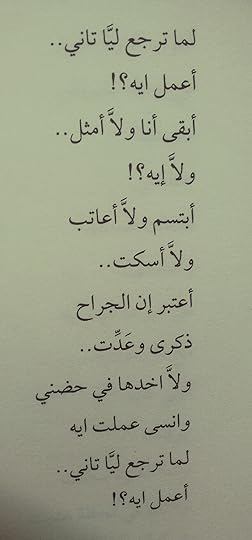 لما ترجع ليَّا تاني..
أعمل ايه؟!
أبقى أنا ولاَّ أمثل..
ولاَّ إيه؟!
أبتسم ولاَّ أعاتب
ولاَّ أسكت..
أعتبر إن الجراح
ذكرى وعَدِّت..
ولاَّ اخدها في حضني
وانسى عملت ايه
لما ترجع ليَّا تاني..
أعمل ايه؟!